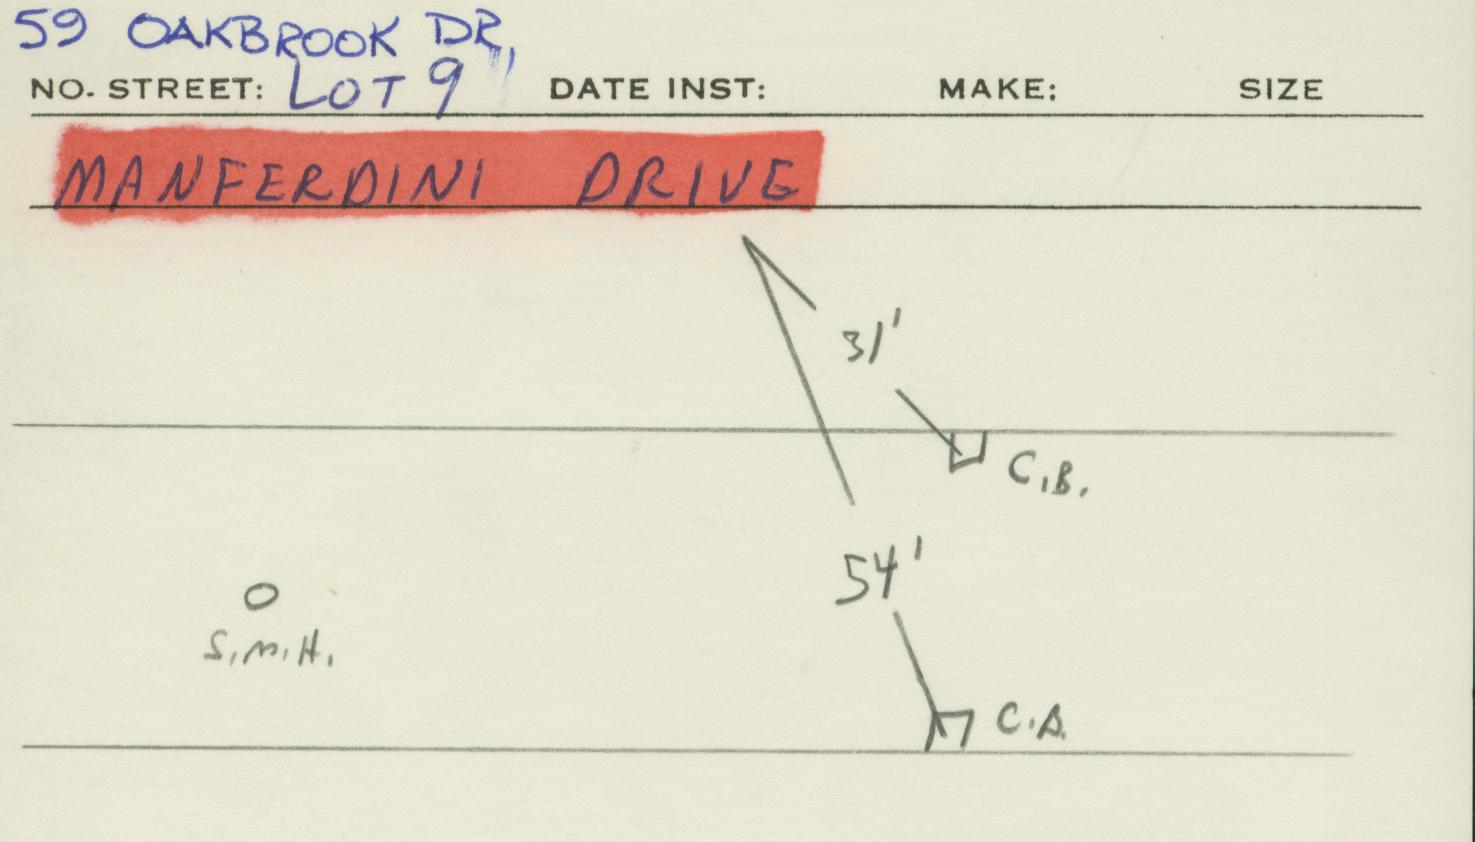 59 OAKBROOK DR,
NO. STREET: LOT 9 DATE INST: MAKE: SIZE
MANFERDINI DRIVE
31'
C.B.
54'
S.M.H.
C.B.